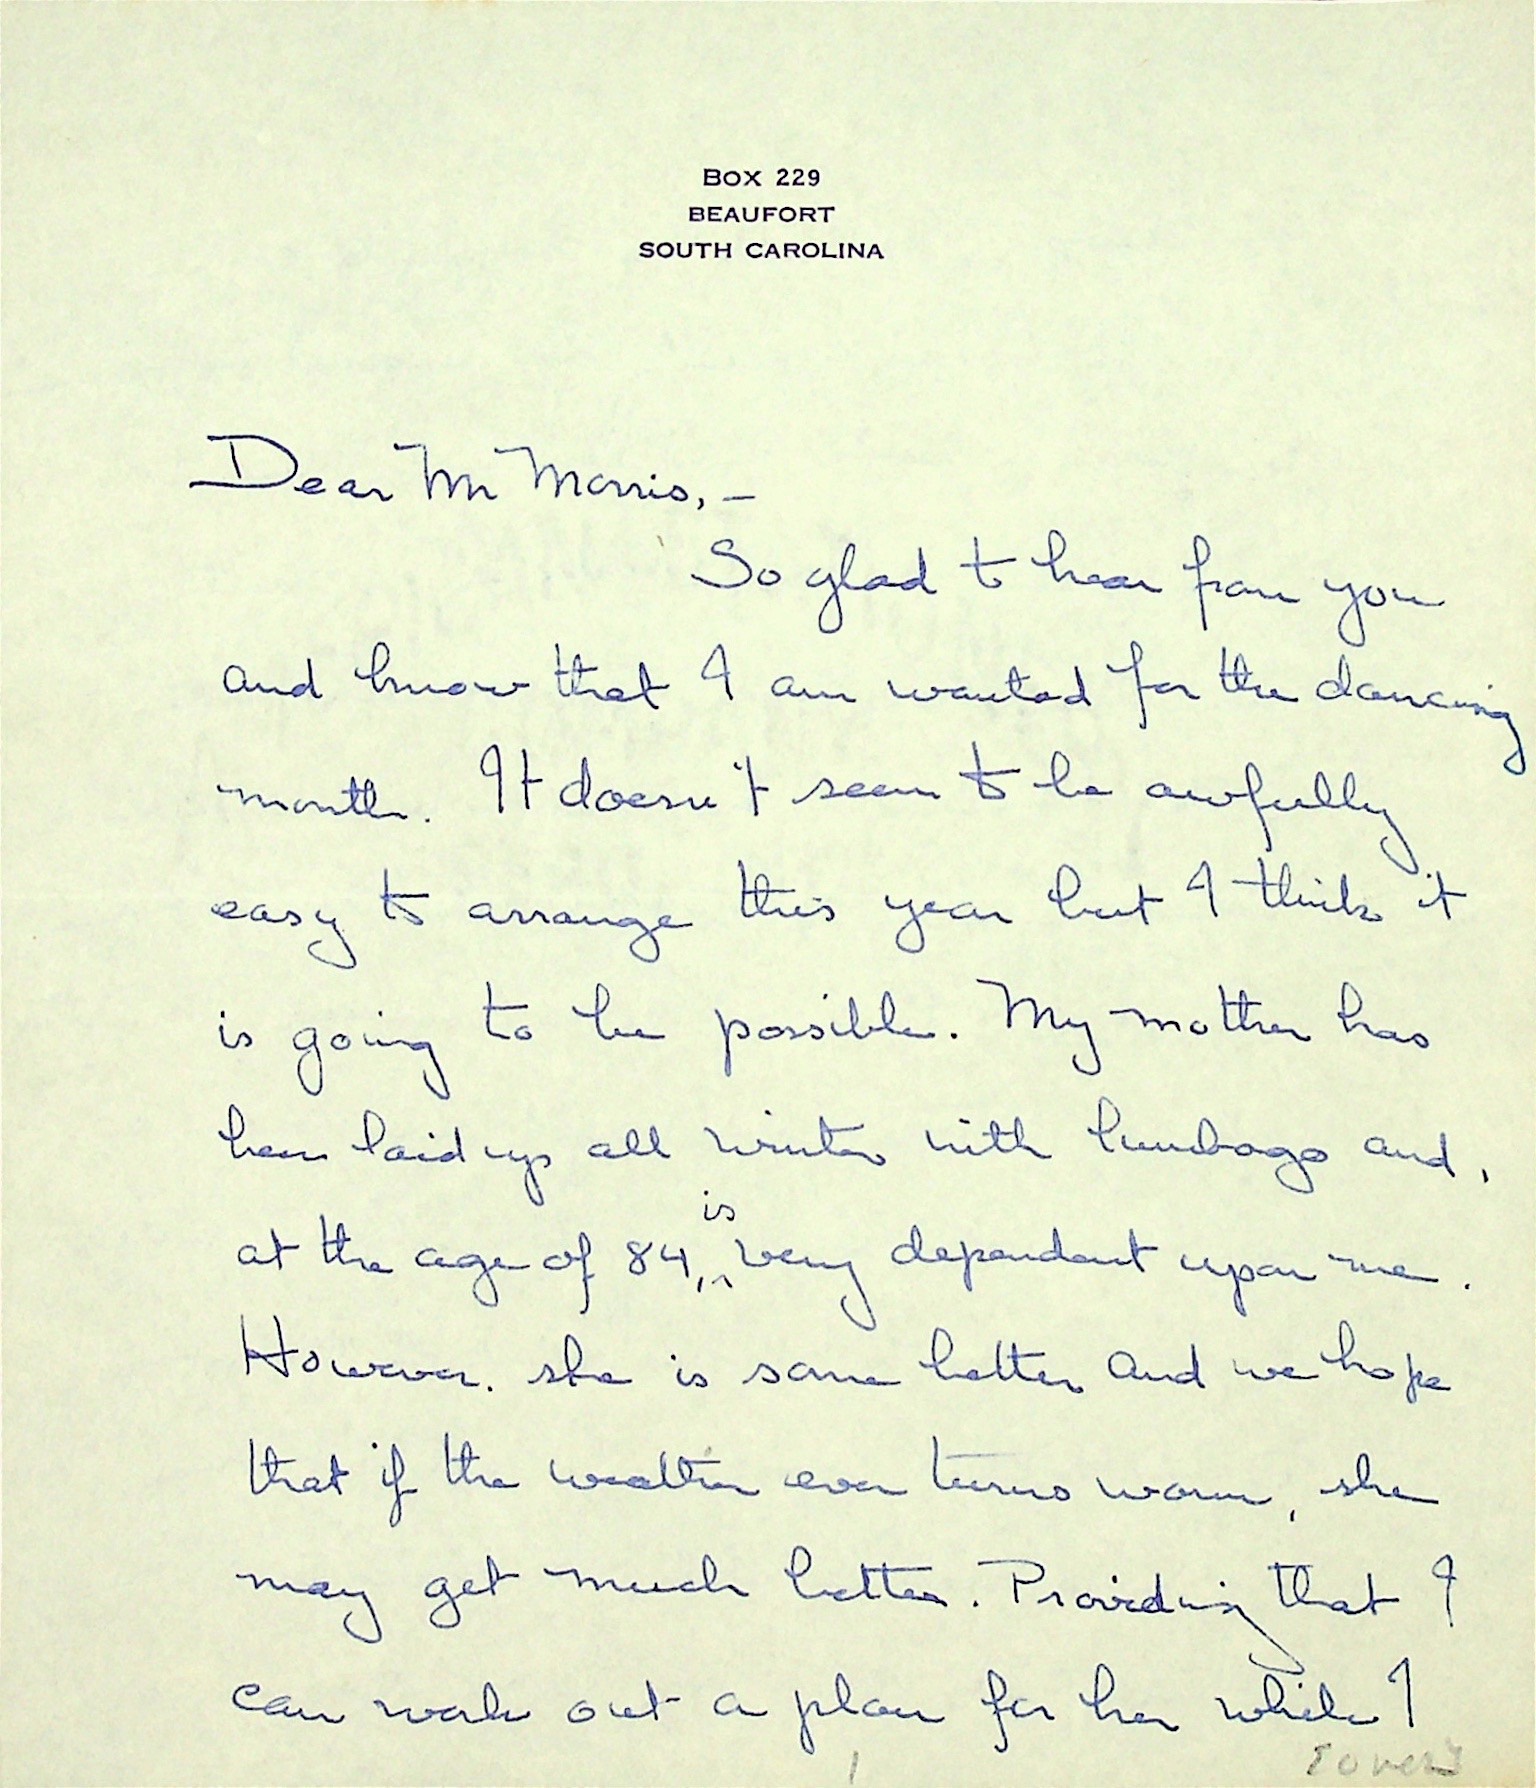 BOX 229
BEAUFORT
SOUTH CAROLINA
Dear Mr Morris, –
So glad to hear from you
and know that I am wanted for the dancing
month. It doesn't seem to be awfully
easy to arrange this year but I think it
is going to be possible. My mother has
been laid up all winter with lumbago and,
is
at the age of 84, ^ very dependent upon me.
However. she is some better and we hope
that if the weather ever turns warm, she
may get much better. Providing that I
can work out a plan for her while I
(over)